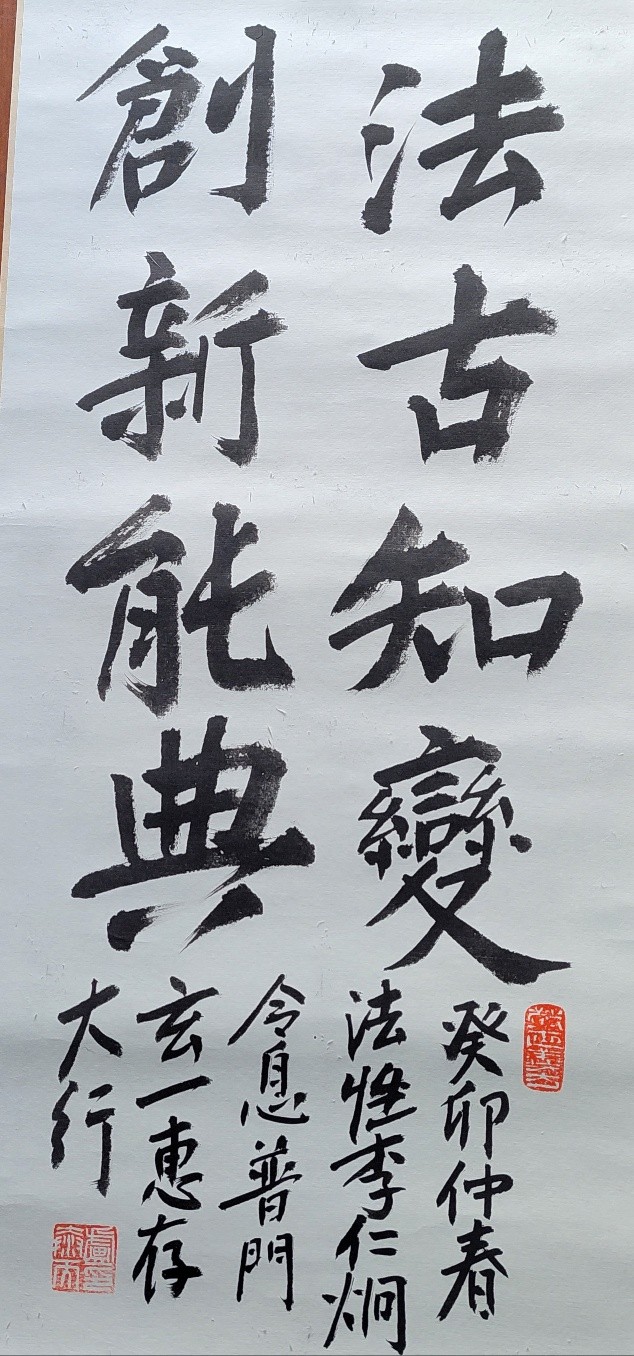 法古知變
創新能典
癸卯仲春
法惺李仁炯
令息普門
玄一惠存
大行